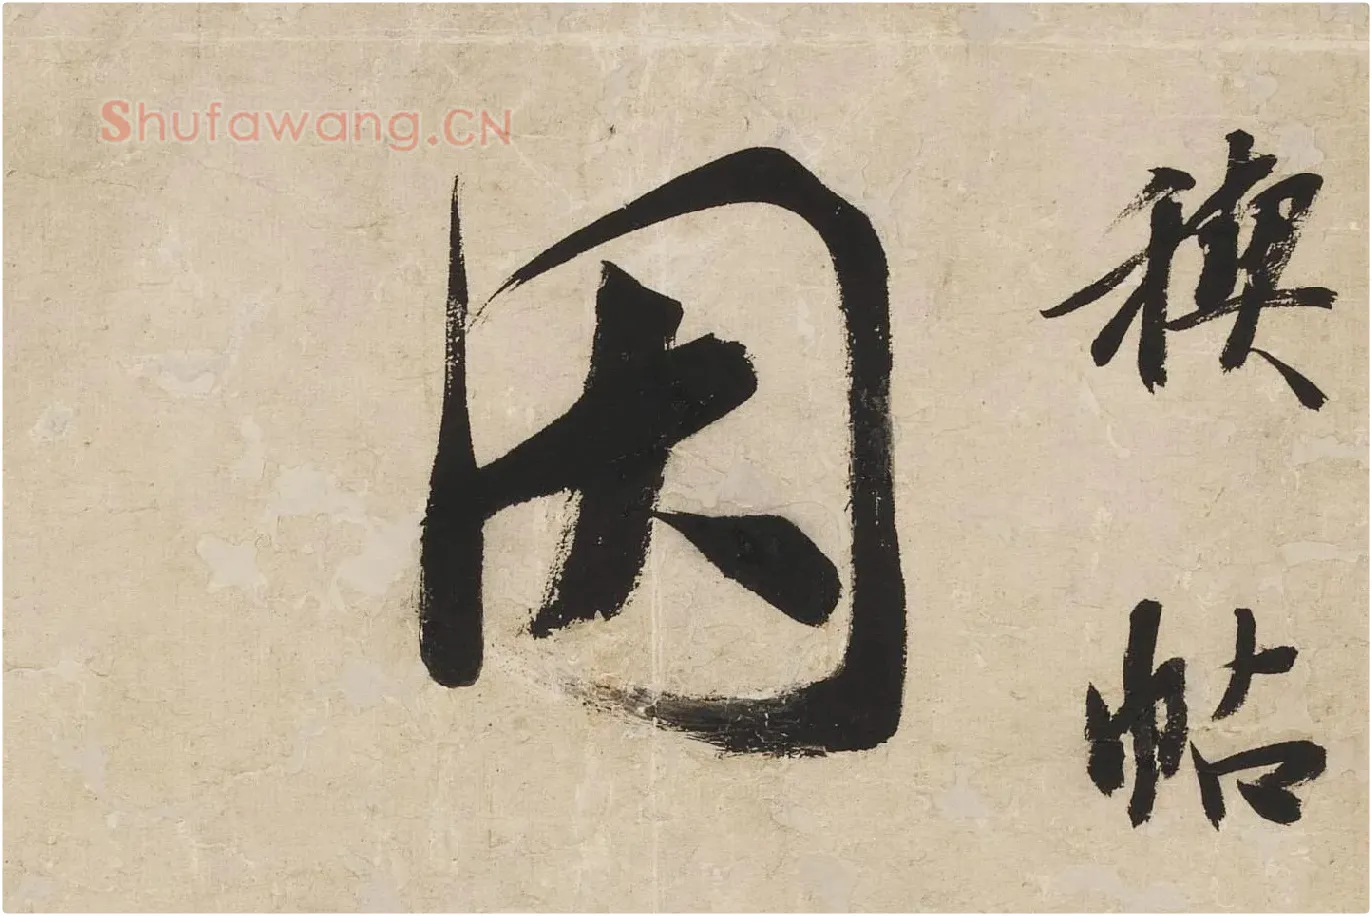 Shufawang.CN
稧帖
因